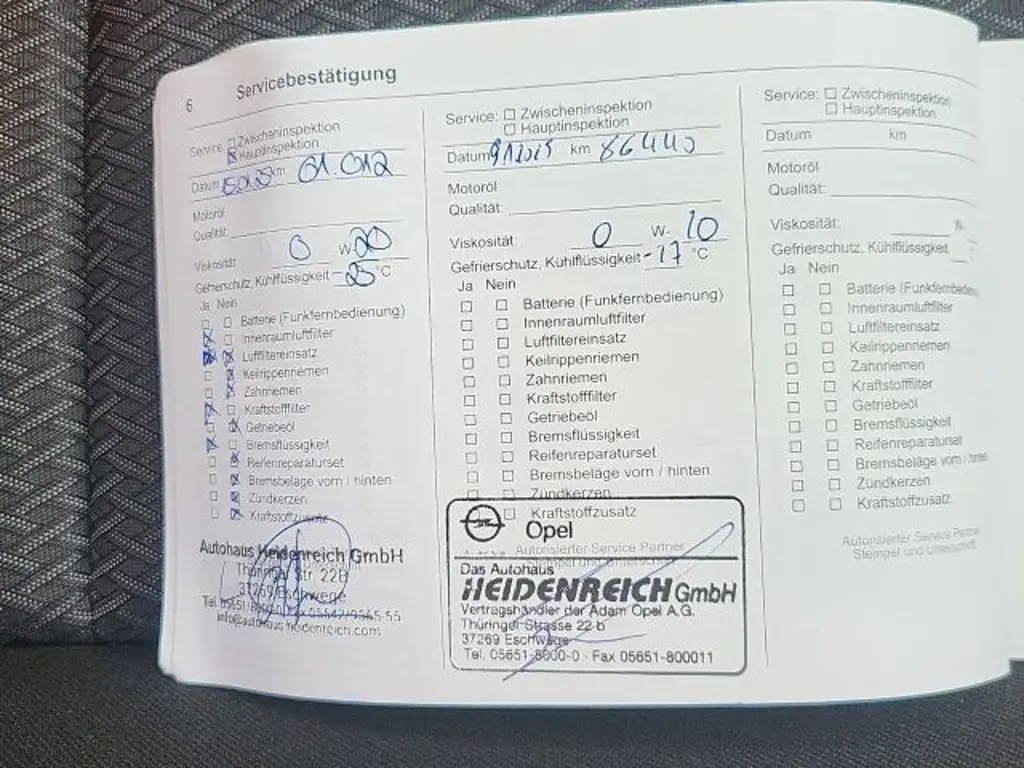 6 Servicebestätigung
Service: Zwischeninspektion
Hauptinspektion
Datum km 61.012
Motoröl
Qualität:
Viskosität: 0 W-20
Gefrierschutz, Kühlflüssigkeit -25 °C
Ja Nein
Batterie (Funkfernbedienung)
Innenraumluftfilter
Luftfiltereinsatz
Keilrippenriemen
Zahnriemen
Kraftstofffilter
Getriebeöl
Bremsflüssigkeit
Reifenreparaturset
Bremsbeläge vorn / hinten
Zündkerzen
Kraftstoffzusatz
Autohaus Heidenreich GmbH
Thüringer Str. 22B
37269 Eschwege
Tel. 05651/
info@autohaus-heidenreich.com
Service: Zwischeninspektion
Hauptinspektion
Datum km 86440
Motoröl
Qualität:
Viskosität: 0 W- 10
Gefrierschutz, Kühlflüssigkeit -17 °C
Ja Nein
Batterie (Funkfernbedienung)
Innenraumluftfilter
Luftfiltereinsatz
Keilrippenriemen
Zahnriemen
Kraftstofffilter
Getriebeöl
Bremsflüssigkeit
Reifenreparaturset
Bremsbeläge vorn / hinten
Zündkerzen
Kraftstoffzusatz
Opel
Autorisierter Service Partner
Das Autohaus
HEIDENREICH GmbH
Vertragshändler der Adam Opel A.G.
Thüringer Strasse 22 b
37269 Eschwege
Tel. 05651-8000-0 · Fax 05651-800011
Service: Zwischeninspektion
Hauptinspektion
Datum km
Motoröl
Qualität:
Viskosität:
Gefrierschutz, Kühlflüssigkeit
Ja Nein
Batterie (Funkfernbedie
Innenraumluftfilter
Luftfiltereinsatz
Keilrippenriemen
Zahnriemen
Kraftstofffilter
Getriebeöl
Bremsflüssigkeit
Reifenreparaturset
Bremsbeläge vorn / hinten
Zündkerzen
Kraftstoffzusatz
Autorisierter Service Partner
Stempel und Unterschrift